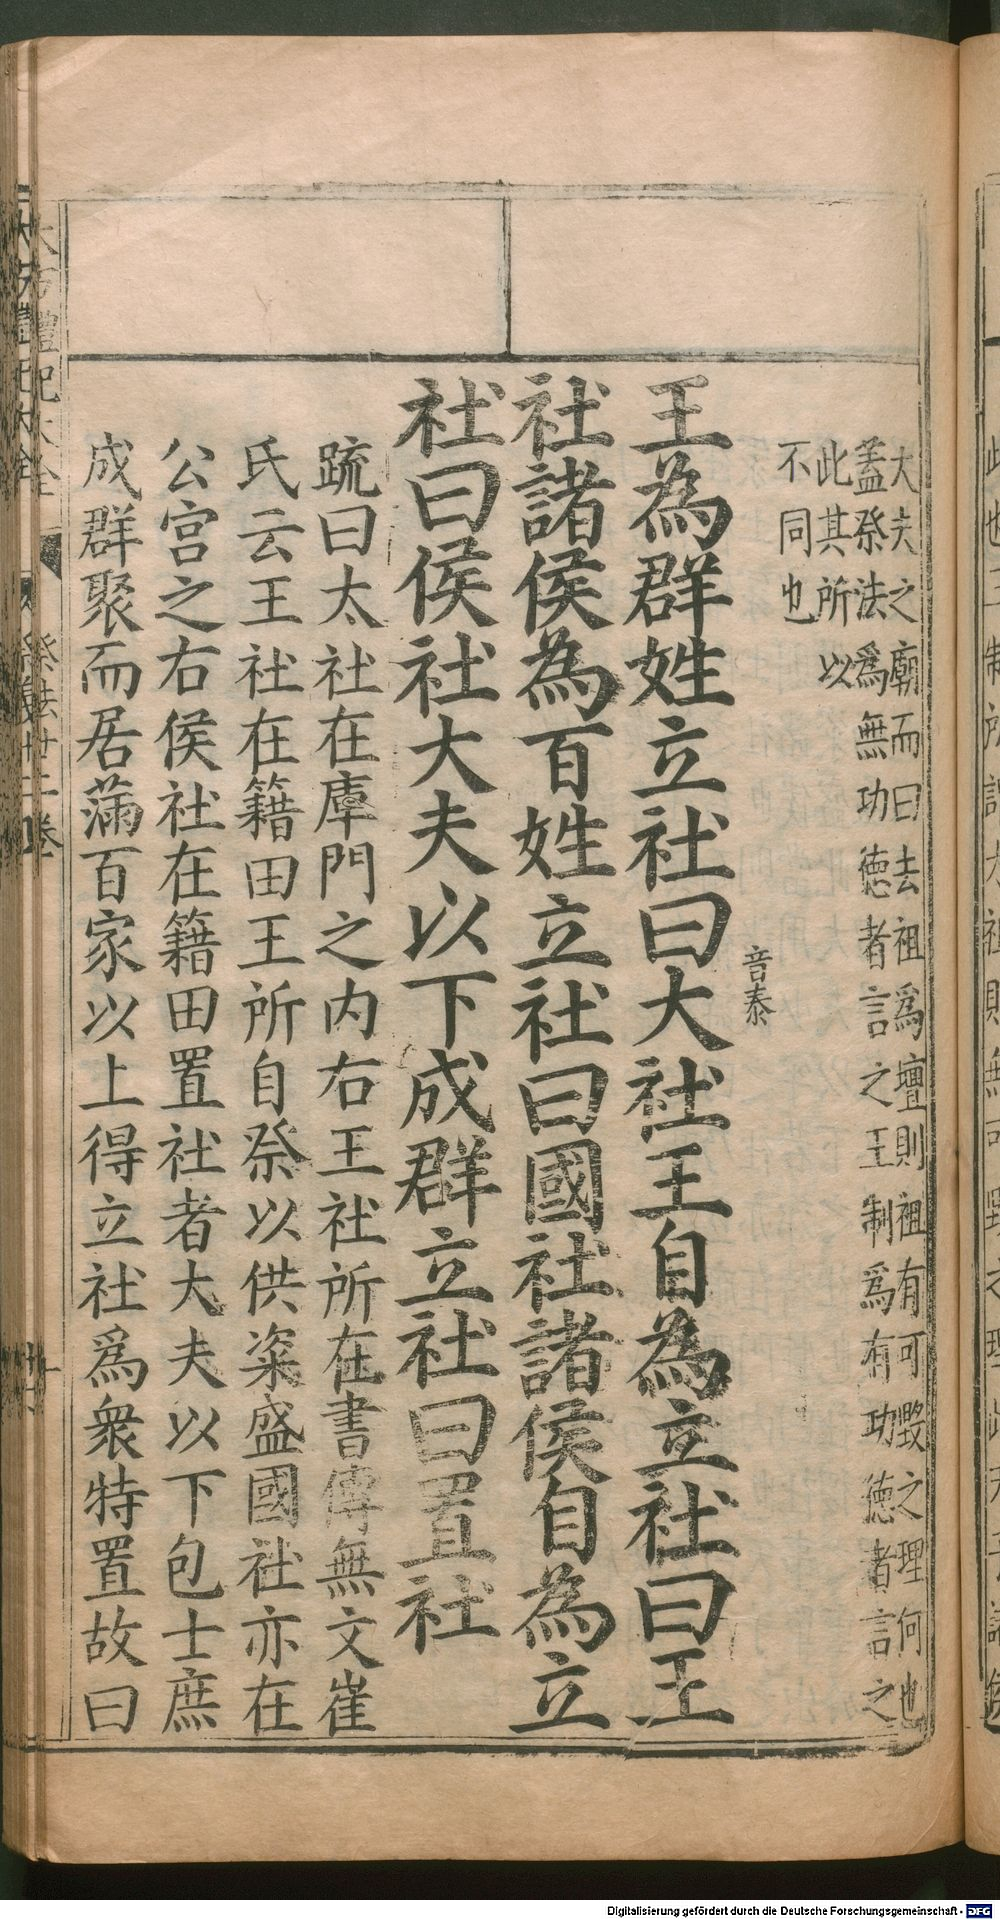 大夫之廟而曰去祖爲壇則祖有可毀之理何也
蓋祭法爲無功德者言之王制爲有功德者言之
此其所以
不同也
音泰
王為群姓立社曰大社王自為立社曰王
社諸侯為百姓立社曰國社諸侯自為立
社曰侯社大夫以下成群立社曰置社
疏曰太社在庫門之内右王社所在書傳無文崔
氏云王社在籍田王所自祭以供粢盛國社亦在
公宮之右侯社在籍田置社者大夫以下包士庶
成群聚而居滿百家以上得立社爲衆特置故曰
祭法廿二卷
Digitalisierung gefördert durch die Deutsche Forschungsgemeinschaft - DFG